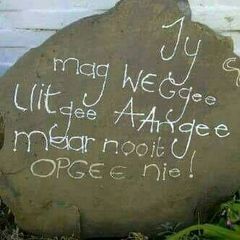 Jy
mag WEGgee
Uitgee AANgee
maar nooit
OPGEE nie!